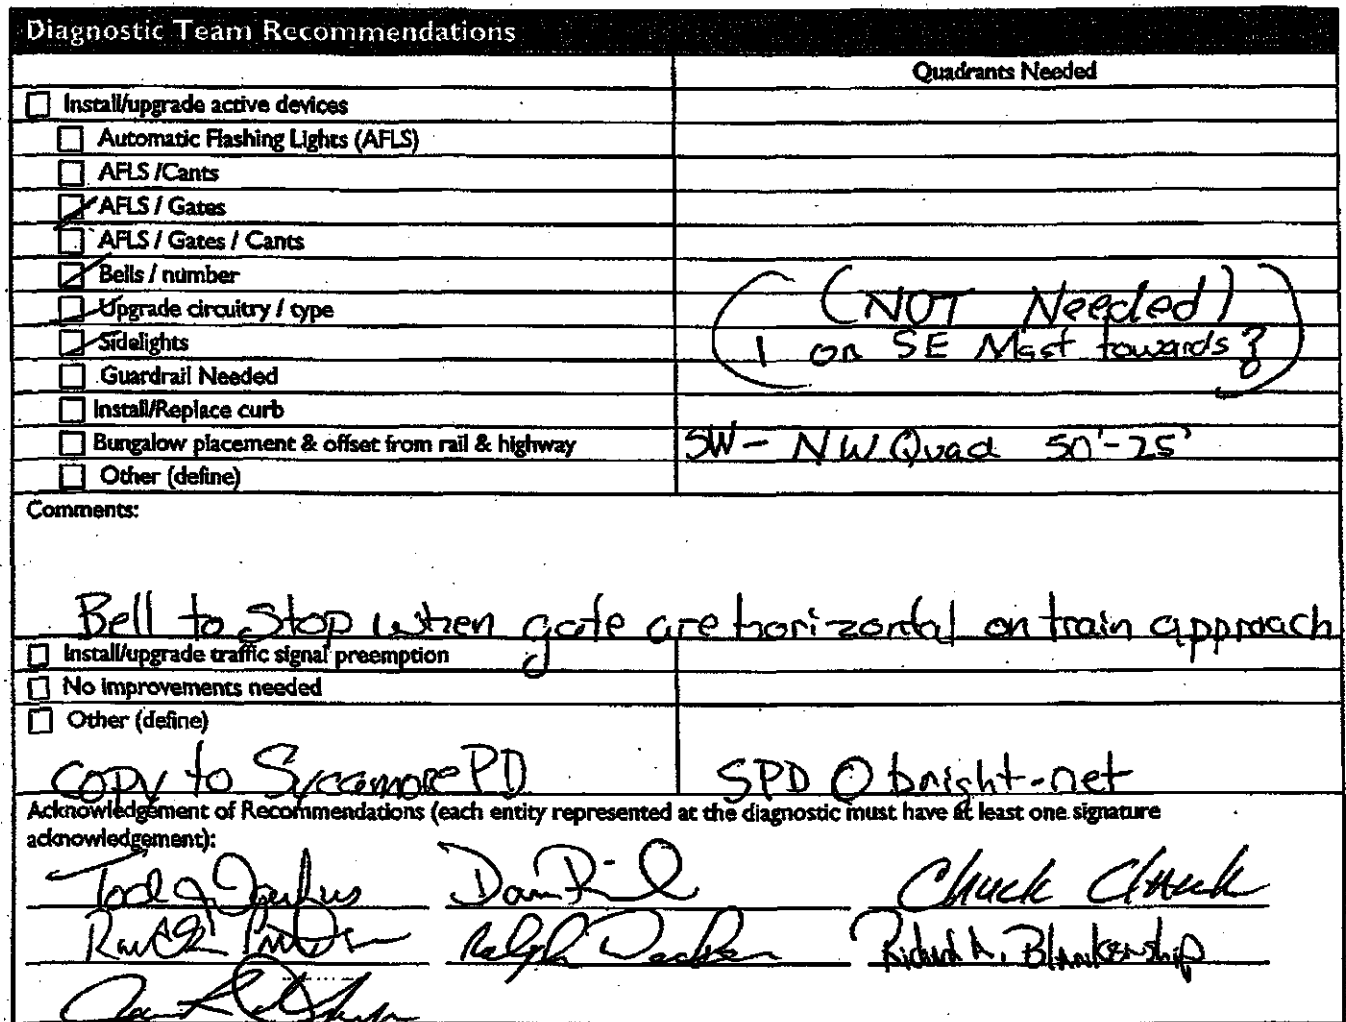 Diagnostic Team Recommendations
Quadrants Needed
Install/upgrade active devices
Automatic Flashing Lights (AFLS)
AFLS /Cants
AFLS / Gates
AFLS / Gates / Cants
Bells / number
Upgrade circuitry / type (NOT Needed)
Sidelights 1 on SE Mast towards ?
Guardrail Needed
Install/Replace curb
Bungalow placement & offset from rail & highway SW - NW Quad 50'-25'
Other (define)
Comments:
Bell to stop when gate are horizontal on train approach
Install/upgrade traffic signal preemption
No improvements needed
Other (define)
copy to Sycamore PD SPD @ bright.net
Acknowledgement of Recommendations (each entity represented at the diagnostic must have at least one signature
acknowledgement):
Chuck
Ralph Richard A. Blankenship